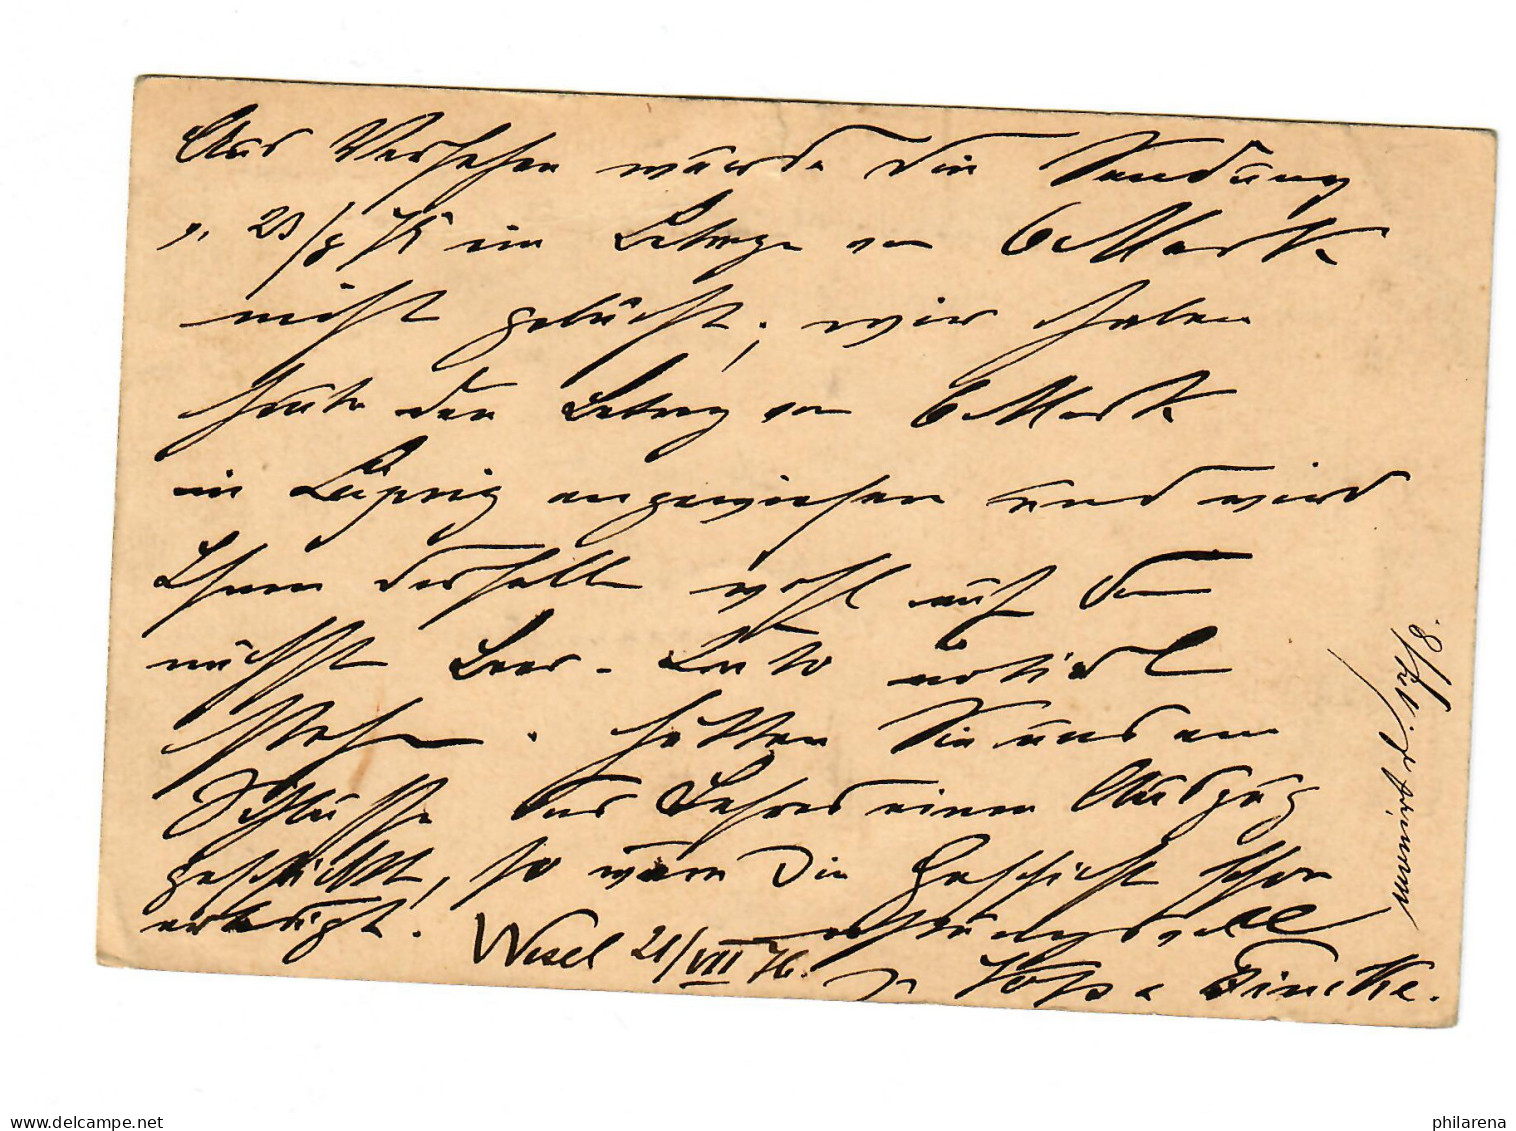 Aus Versehen wurde die Sendung
v. 23/8 75 im Betrage von 6 Mark
nicht gebucht; wir haben
heute den Betrag von 6 Mark
in Leipzig angewiesen und wird
Ihnen derselbe wohl auf der
nächsten Baar-Liste notirt
stehen. Hätten Sie uns am
Schlusse des Jahres einen Auszug
geschickt, so wäre die Geschichte schon
erledigt.
Wesel 21/VII 76.
achtungsvoll
p.
d. 17/8.
philarena.com